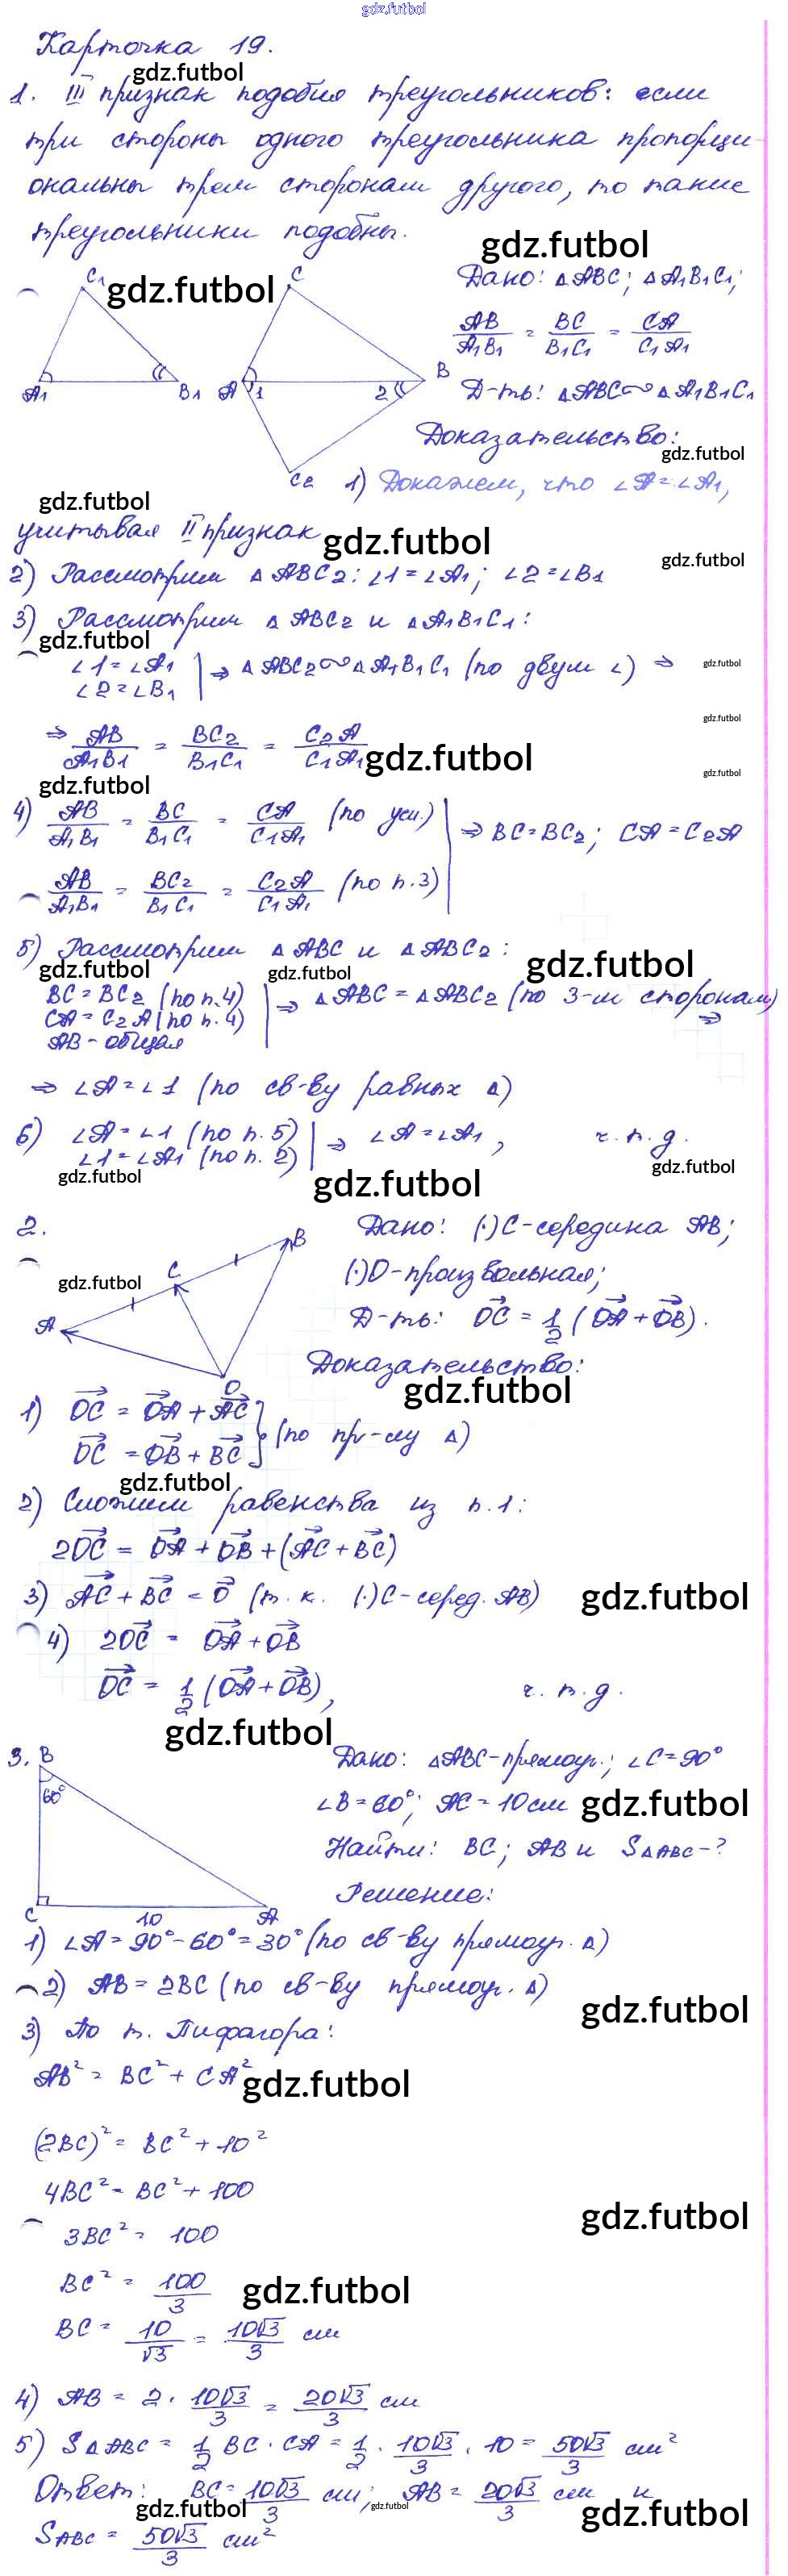 gdz.futbol
Карточка 19.
gdz.futbol
1. III признак подобия треугольников: если
три стороны одного треугольника пропорци-
ональны трем сторонам другого, то такие
треугольники подобны.
gdz.futbol
C1 gdz.futbol C Дано: △ABC; △A1B1C1;
AB/A1B1 = BC/B1C1 = CA/C1A1
A1 B1 A 1 2 B Д-ть: △ABC∾△A1B1C1
Доказательство:
gdz.futbol
C2 1) Докажем, что ∠A=∠A1,
gdz.futbol
учитывая II признак gdz.futbol
gdz.futbol
2) Рассмотрим △ABC2: ∠1=∠A1; ∠2=∠B1
3) Рассмотрим △ABC2 и △A1B1C1:
gdz.futbol
∠1=∠A1 | ⇒ △ABC2∾△A1B1C1 (по двум ∠) ⇒ gdz.futbol
∠2=∠B1
gdz.futbol
⇒ AB/A1B1 = BC2/B1C1 = C2A/C1A1 gdz.futbol
gdz.futbol
gdz.futbol
4) AB/A1B1 = BC/B1C1 = CA/C1A1 (по усл.) | ⇒ BC=BC2; CA=C2A
AB/A1B1 = BC2/B1C1 = C2A/C1A1 (по п.3)
5) Рассмотрим △ABC и △ABC2: gdz.futbol
gdz.futbol gdz.futbol
BC=BC2 (по п.4) | ⇒ △ABC=△ABC2 (по 3-м сторонам) ⇒
CA=C2A (по п.4)
AB-общая
⇒ ∠A=∠1 (по св-ву равных △)
6) ∠A=∠1 (по п.5) | ⇒ ∠A=∠A1, ч.т.д.
∠1=∠A1 (по п.2)
gdz.futbol gdz.futbol gdz.futbol
2. B Дано: (·)C-середина AB;
gdz.futbol C (·)O-произвольная;
A Д-ть: OC = 1/2 (OA+OB).
O Доказательство:
gdz.futbol
1) OC = OA + AC
OC = OB + BC } (по пр-лу △)
gdz.futbol
2) Сложим равенства из п.1:
2OC = OA + OB + (AC + BC)
3) AC + BC = 0 (т.к. (·)C-серед. AB) gdz.futbol
4) 2OC = OA + OB
OC = 1/2 (OA+OB), ч.т.д.
gdz.futbol
3. B Дано: △ABC-прямоуг.; ∠C=90°
60° ∠B=60°; AC=10см gdz.futbol
Найти: BC; AB и S△ABC-?
Решение:
C 10 A
1) ∠A=90°-60°=30° (по св-ву прямоуг. △)
2) AB=2BC (по св-ву прямоуг. △)
gdz.futbol
3) По т. Пифагора:
AB² = BC² + CA² gdz.futbol
(2BC)² = BC² + 10²
4BC² = BC² + 100
gdz.futbol
3BC² = 100
BC² = 100/3 gdz.futbol
BC = 10/√3 = 10√3/3 см
4) AB = 2 · 10√3/3 = 20√3/3 см
5) S△ABC = 1/2 BC · CA = 1/2 · 10√3/3 · 10 = 50√3/3 см²
Ответ: BC = 10√3/3 см; AB = 20√3/3 см и
gdz.futbol gdz.futbol gdz.futbol
SABC = 50√3/3 см²